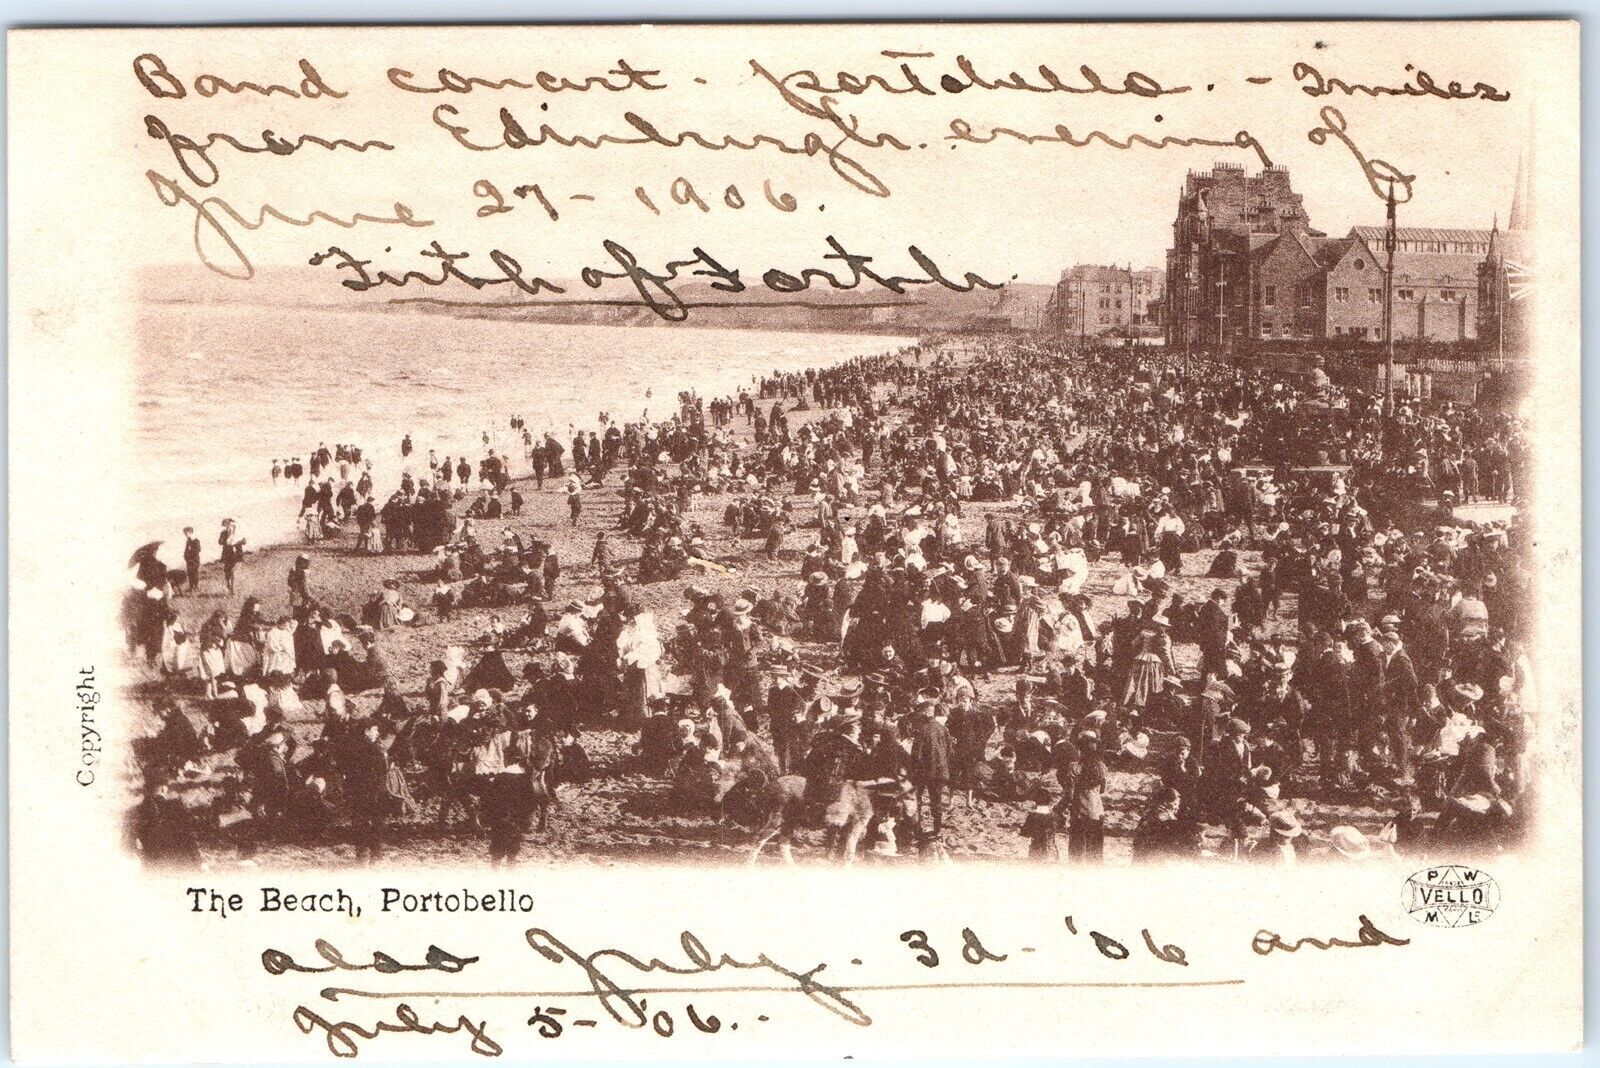 Band concert - portobello. - 2 miles
from Edinburgh. evening of
June 27 - 1906.
Firth of Forth.
Copyright
The Beach, Portobello
P W
VELLO
M L
also July. 3d - '06 and
July 5 - '06.